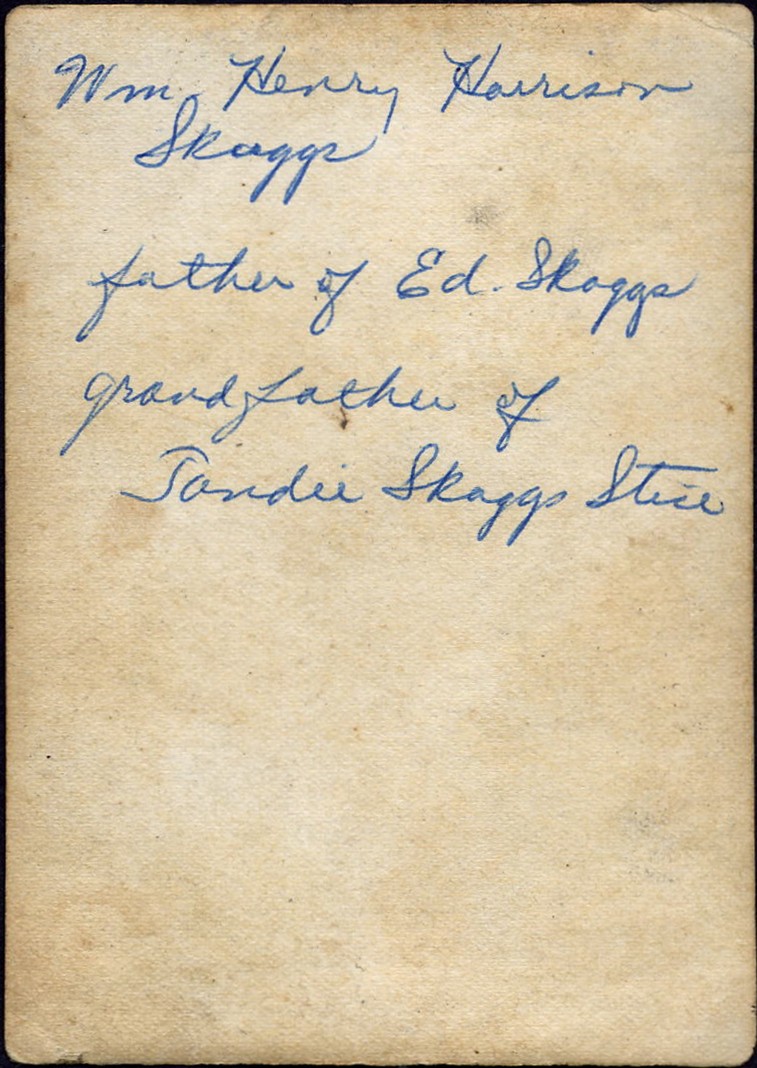 Wm. Henry Harrison
Skaggs
father of Ed. Skaggs
grandfather of
Tandie Skaggs Stice